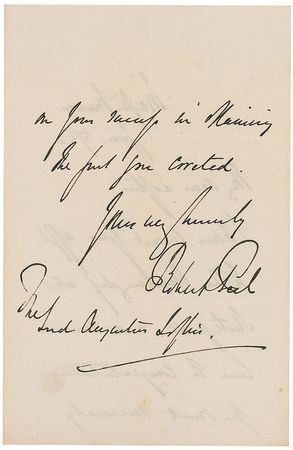 on your success in obtaining
the post you coveted.
Yours very sincerely
Robert Peel
The
Lord Augustus Loftus.